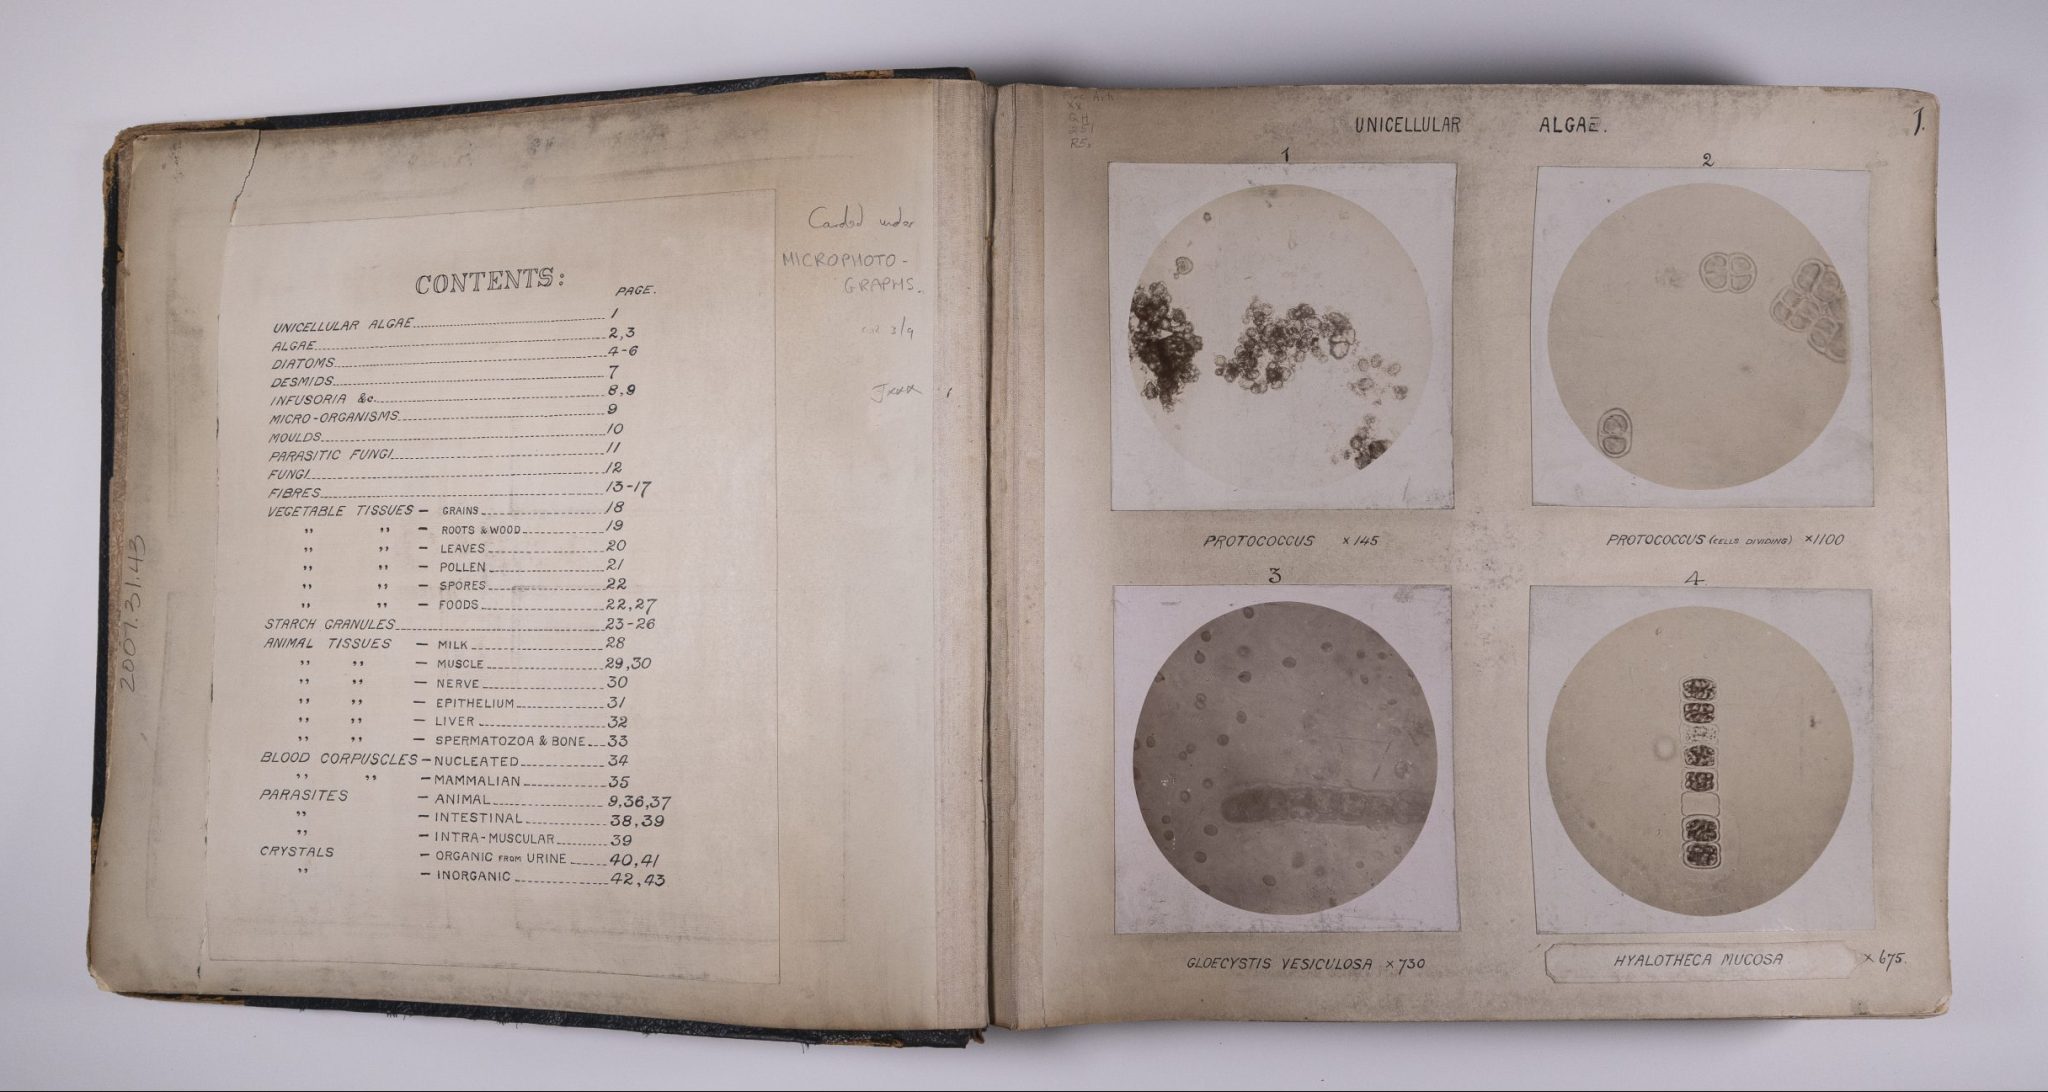 CONTENTS:
PAGE.
UNICELLULAR ALGAE 1
ALGAE 2,3
DIATOMS 4-6
DESMIDS 7
INFUSORIA &c. 8,9
MICRO-ORGANISMS 9
MOULDS 10
PARASITIC FUNGI 11
FUNGI 12
FIBRES 13-17
VEGETABLE TISSUES - GRAINS 18
" " - ROOTS & WOOD 19
" " - LEAVES 20
" " - POLLEN 21
" " - SPORES 22
" " - FOODS 22,27
STARCH GRANULES 23-26
ANIMAL TISSUES - MILK 28
" " - MUSCLE 29,30
" " - NERVE 30
" " - EPITHELIUM 31
" " - LIVER 32
" " - SPERMATOZOA & BONE 33
BLOOD CORPUSCLES - NUCLEATED 34
" " - MAMMALIAN 35
PARASITES - ANIMAL 9,36,37
" - INTESTINAL 38,39
" - INTRA-MUSCULAR 39
CRYSTALS - ORGANIC FROM URINE 40,41
" - INORGANIC 42,43
2007.31.43
Carded under
MICROPHOTO-
GRAPHS.
UNICELLULAR ALGAE. 1.
1
2
PROTOCOCCUS ×145
PROTOCOCCUS (CELLS DIVIDING) ×1100
3
4
GLOECYSTIS VESICULOSA ×730
HYALOTHECA MUCOSA ×675.